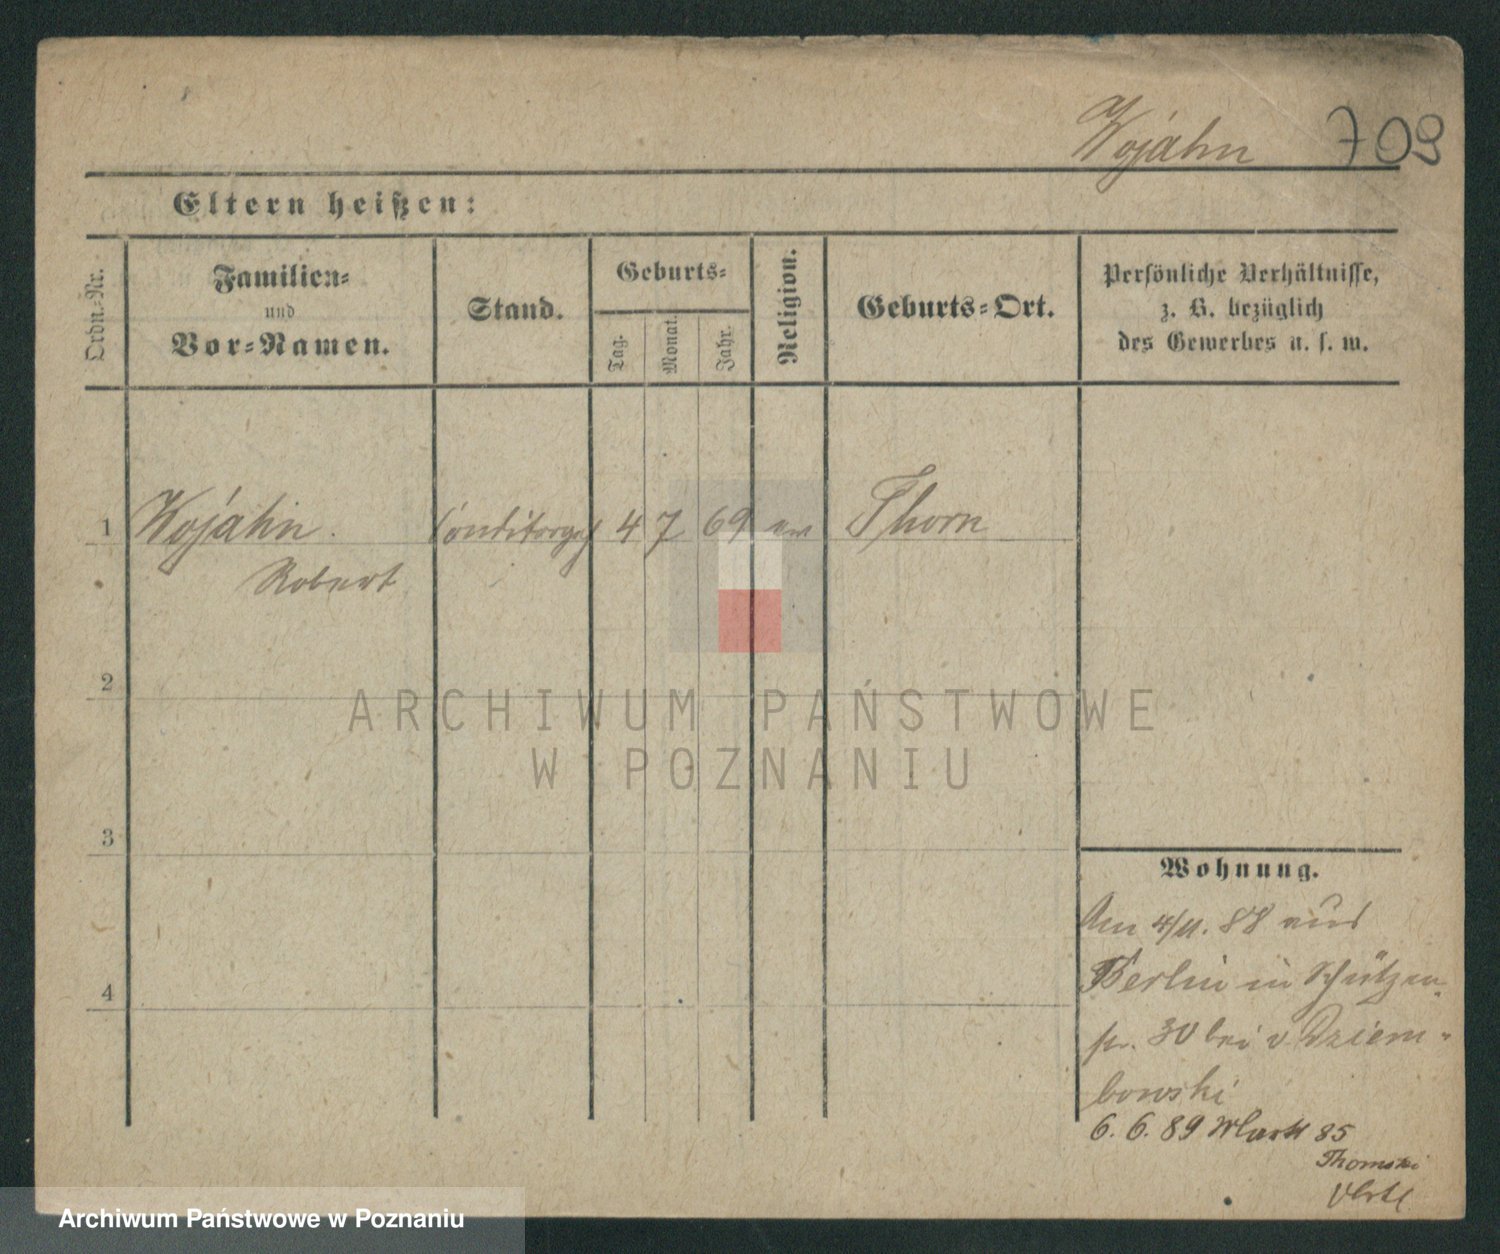 Wojahn 709
Eltern heißen:
Ordn.-Nr.
Familien-
und
Vor-Namen.
Stand.
Geburts-
Tag.
Monat.
Jahr.
Religion.
Geburts-Ort.
Persönliche Verhältnisse,
z. B. bezüglich
des Gewerbes u. s. w.
1 Wojahn. Conditorgeh 4 7 69 ev Thorn
Robert
2
3
4
Wohnung.
Am 4/11. 88 aus
Berlin in Schützen-
str. 30 bei v Dziem-
bowski
6. 6. 89 Markt 85
Thomski
ARCHIWUM PAŃSTWOWE
W POZNANIU
Archiwum Państwowe w Poznaniu